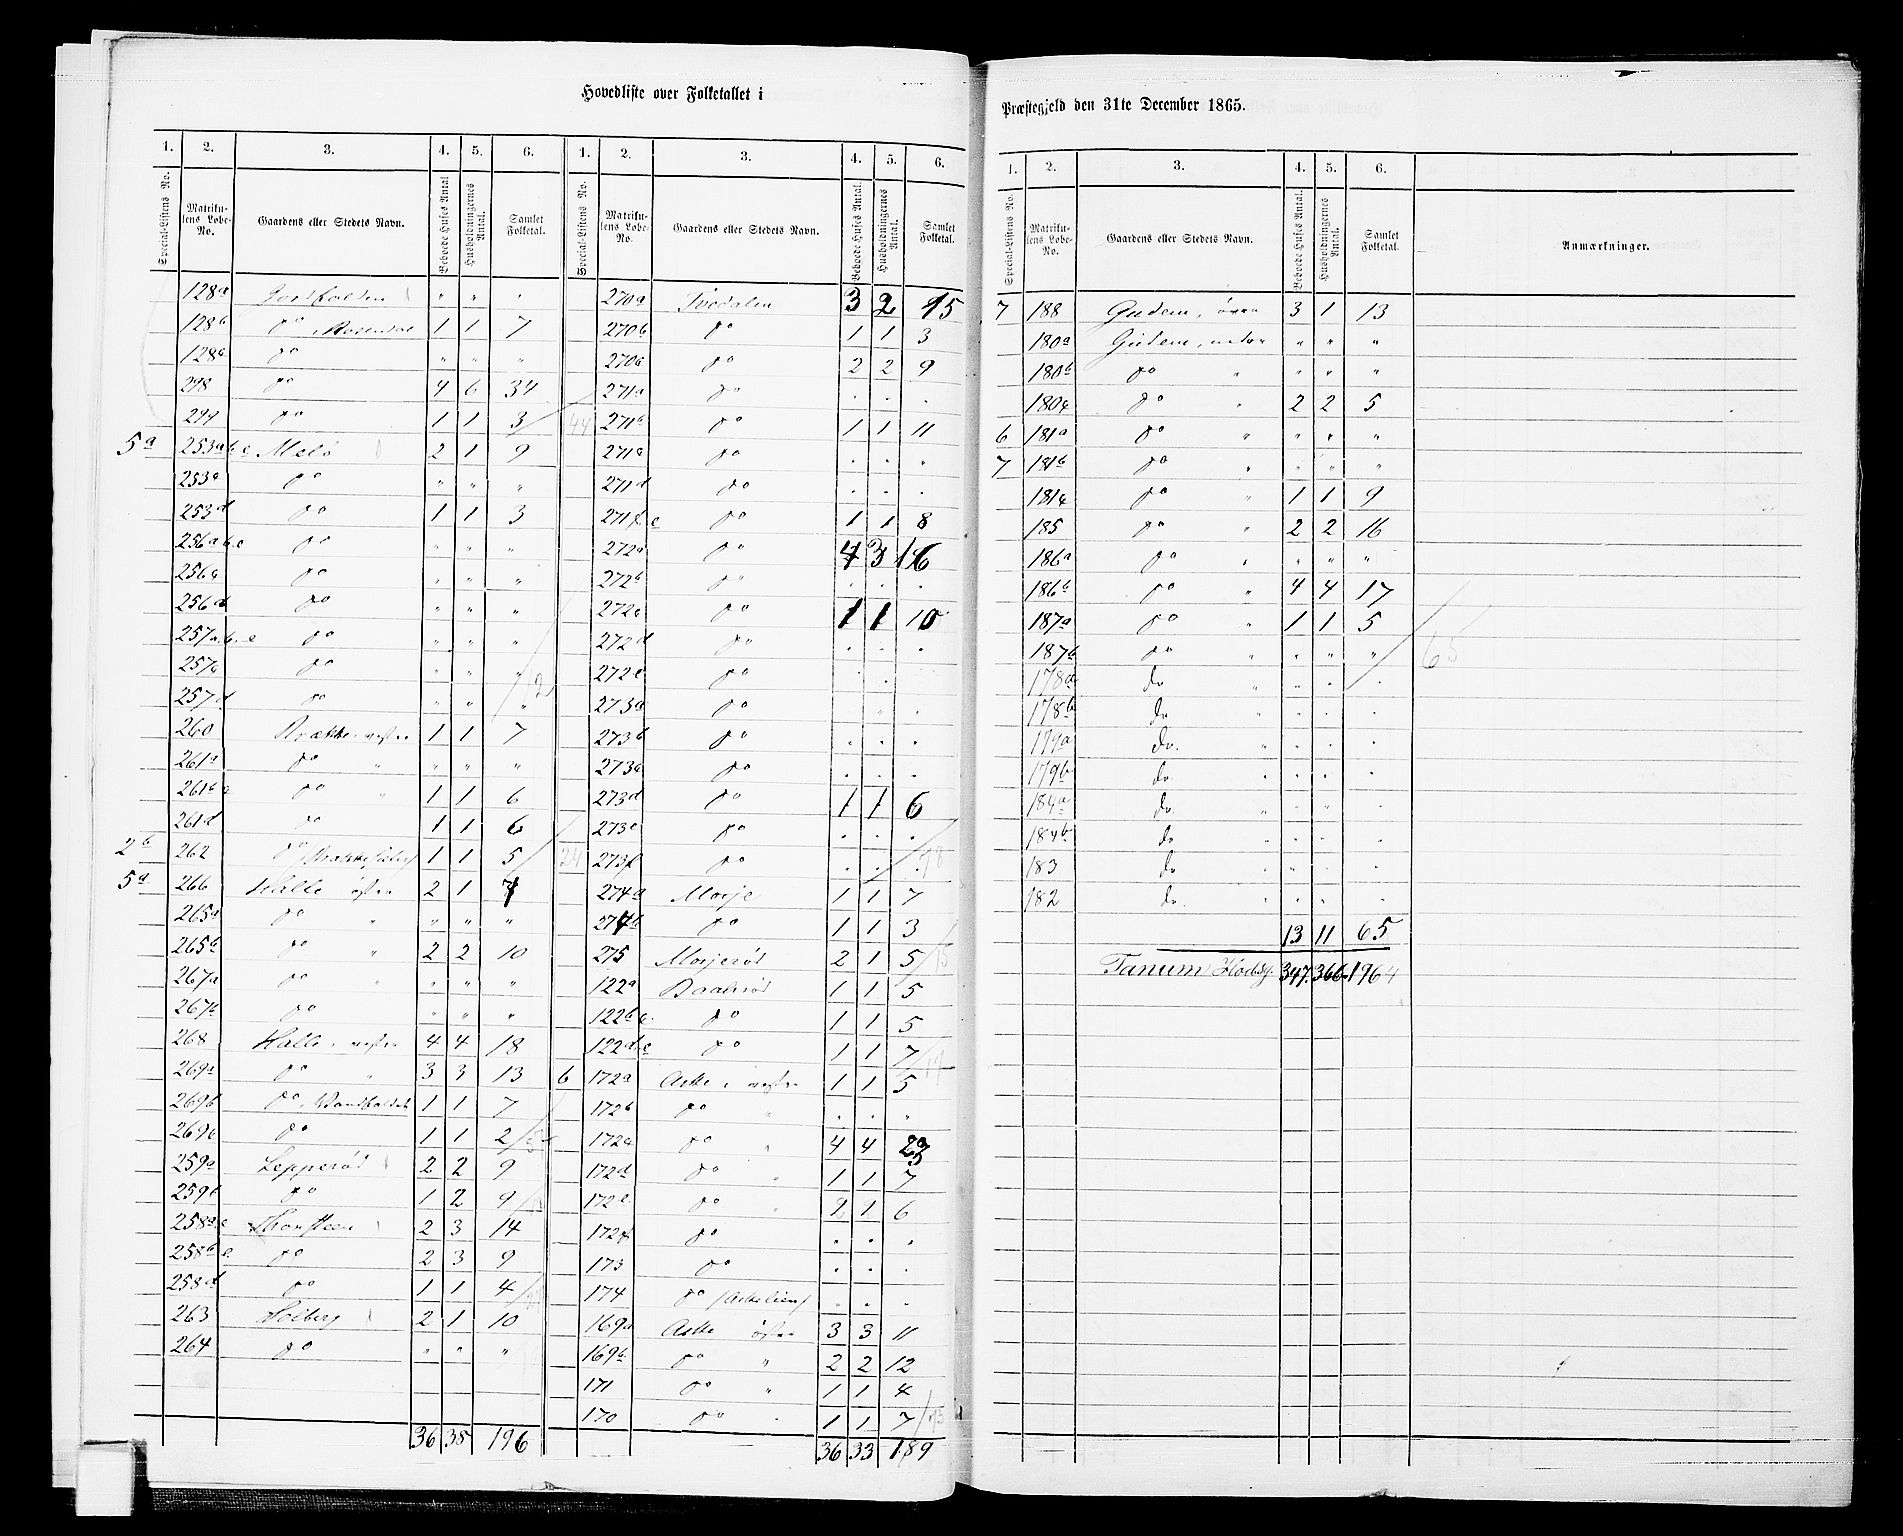 Hovedliste over Folketallet i
Præstegjeld den 31te December 1865.
1. 2. 3. 4. 5. 6. 1. 2. 3. 4. 5. 6.
Special-Listens No. Matrikulens Løbe-No. Gaardens eller Stedets Navn. Beboede Huses Antal. Husholdningernes Antal. Samlet Folketal. Special-Listens No. Matrikulens Løbe-No. Gaardens eller Stedets Navn. Beboede Huses Antal. Husholdningernes Antal. Samlet Folketal.
128a " " "
128b do 1 1 7
128c do " " "
298 do 4 6 34
299 do 1 1 3
5a 253a b c Melø 2 1 9
253a do " " "
253d do 1 1 3
256a b c do " " "
256c do " " "
256d do " " "
257a b c do " " "
257c do " " "
257d do " " "
260 Brække, vestre 1 1 7
261a do " " " "
261b c do " 1 1 6
261d do 1 1 6
2b 262 do 1 1 5 24
5a 266 Halle østre 2 1 7
265a do " " " "
265b do " 2 2 10
267a do " " " "
267b do " " "
268 Halle, vestre 4 4 18
269a do " 3 3 13
269b do 1 1 7
269c do 1 1 2
259a Lepperød 2 2 9
259b do 1 2 9
258a c Thorsteen 2 3 14
258b c do 2 3 9
258d do 1 1 4
263 Holberg 2 1 10
264 do " " "
36 38 196
270a Tvedalen 3 2 15
270b do 1 1 3
270c do 2 2 9
271a do . . .
44 271b do 1 1 11
271c do . . .
271d do . . .
271f e do 1 1 8
272a do 4 3 16
272b do . . .
272c do 1 1 10
272d do . . .
272e do . . .
273a do . . .
273b do . . .
273c do . . .
273d do 1 1 6
273e do . . .
273f do . . . 78
274a Morje 1 1 7
274b do 1 1 3
275 Morjerød 2 1 5 15
122a Baalsrød 1 1 5
122b c do 1 1 5
122d e do 1 1 7 17
6 172a Aske, vestre 1 1 5
172b do " . . "
172c do " 4 4 23
172d do " 1 1 7
172e do " 2 1 6
172f do . . .
173 do . . .
174 do (Askelien) . . .
169a Aske østre 3 3 11
169b do " 2 2 12
171 do " 1 1 4
170 do . 1 1 7
36 33 189
1. 2. 3. 4. 5. 6.
Special-Listens No. Matrikulens Løbe-No. Gaardens eller Stedets Navn. Beboede Huses Antal. Husholdningernes Antal. Samlet Folketal. Anmærkninger.
7 188 Gudem, øvre 3 1 13
180a Gudem, nedre " " "
180b do " " " "
180c do " 2 2 5
6 181a do " " " "
7 181b do " " " "
181c do " 1 1 9
185 do " 2 2 16
186a do " " " "
186b do " 4 4 17
187a do " 1 1 5
187b do " " " " 65
178a do " " " .
178b do " . . .
179a do. " . . .
179b do " . . .
184a do " . . .
184b do " . . .
183 do " . . .
182 do. " . . .
13 11 65
Tanum Hovedsg. 347. 366 1964